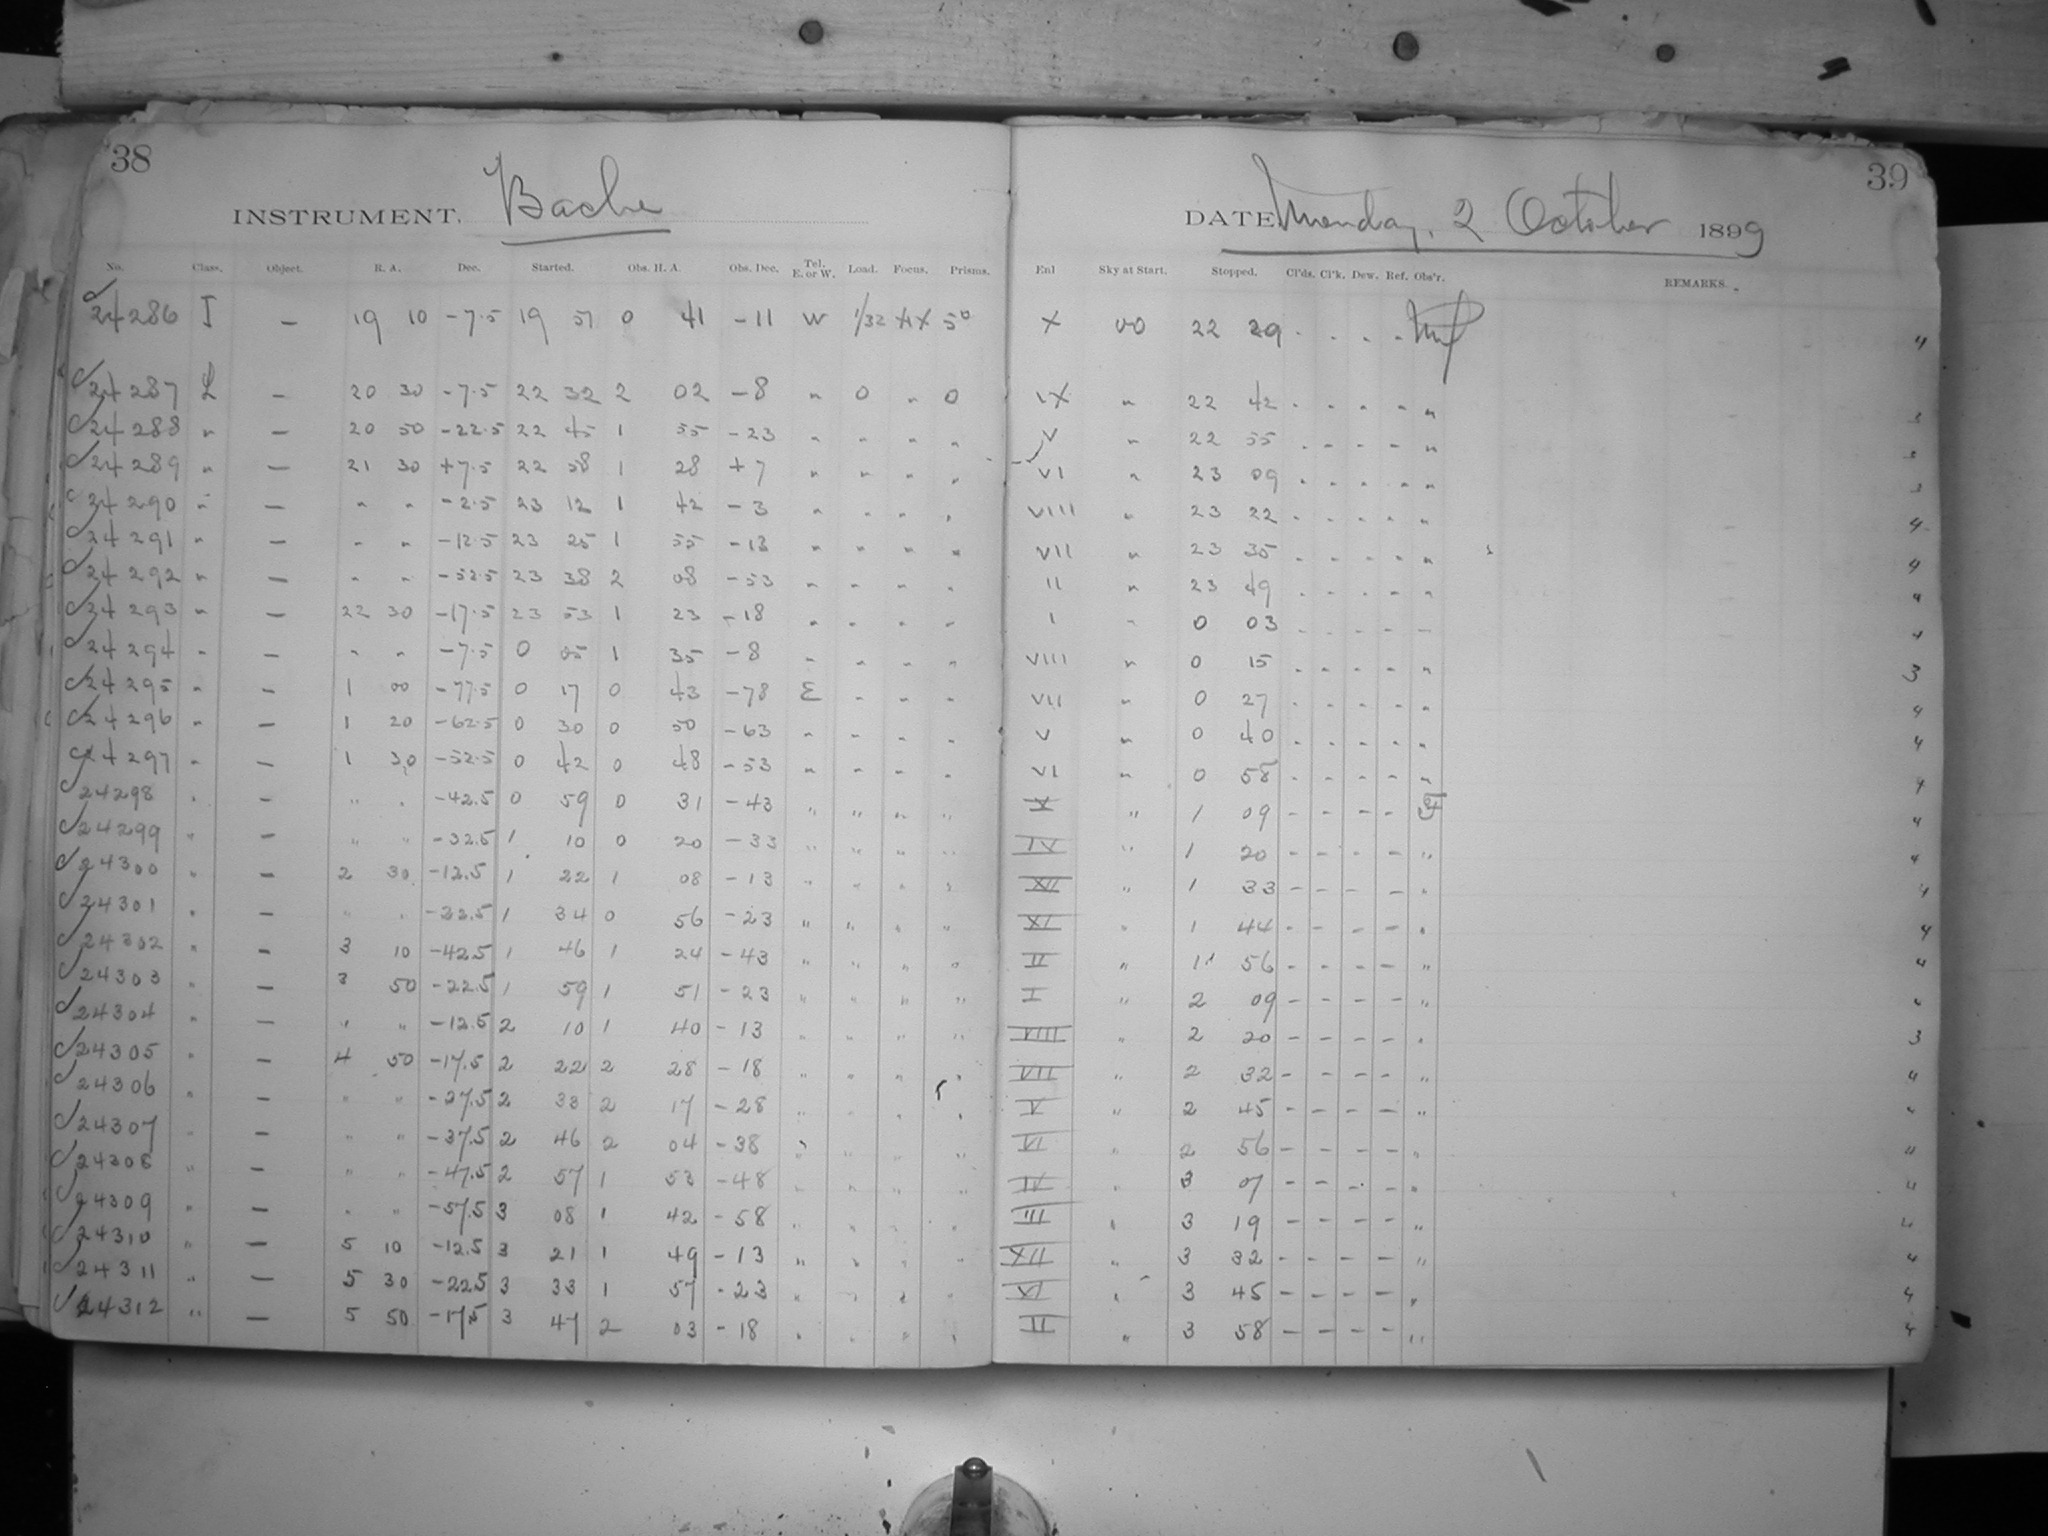 38
INSTRUMENT. Bache
No. Class. Object. R. A. Dec. Started. Obs. H. A. Obs. Dec. Tel. E. or W. Load. Focus. Prisms.
24286 I — 19 10 -7.5 19 51 0 41 -11 W 1/32 50
24287 L — 20 30 -7.5 22 32 2 02 -8 " 0 " 0
24288 " — 20 50 -22.5 22 45 1 55 -23 " " " "
24289 " — 21 30 +7.5 22 58 1 28 +7 " " " "
24290 " — " " -2.5 23 12 1 42 -3 " " " "
24291 " — " " -12.5 23 25 1 55 -13 " " " "
24292 " — " " -52.5 23 38 2 08 -53 " " " "
24293 " — 22 30 -17.5 23 53 1 23 -18 " " " "
24294 " — " " -7.5 0 05 1 35 -8 " " " "
24295 " — 1 00 -77.5 0 17 0 43 -78 E " " "
24296 " — 1 20 -62.5 0 30 0 50 -63 " " " "
24297 " — 1 30 -52.5 0 42 0 48 -53 " " " "
24298 " — " " -42.5 0 59 0 31 -43 " " " "
24299 " — " " -32.5 1 10 0 20 -33 " " " "
24300 " — 2 30 -12.5 1 22 1 08 -13 " " " "
24301 " — " " -22.5 1 34 0 56 -23 " " " "
24302 " — 3 10 -42.5 1 46 1 24 -43 " " " "
24303 " — 3 50 -22.5 1 59 1 51 -23 " " " "
24304 " — " " -12.5 2 10 1 40 -13 " " " "
24305 " — 4 50 -17.5 2 22 2 28 -18 " " " "
24306 " — " " -27.5 2 33 2 17 -28 " " " "
24307 " — " " -37.5 2 46 2 04 -38 " " " "
24308 " — " " -47.5 2 57 1 53 -48 " " " "
24309 " — " " -57.5 3 08 1 42 -58 " " " "
24310 " — 5 10 -12.5 3 21 1 49 -13 " " " "
24311 " — 5 30 -22.5 3 33 1 57 -23 " " " "
24312 " — 5 50 -17.5 3 47 2 03 -18 " " " "
39
DATE Monday, 2 October 1899
Enl Sky at Start. Stopped. Cl'ds. Cl'k. Dew. Ref. Obs'r. REMARKS.
X 00 22 29 - - - - 4
IX " 22 42 - - - - " 3
V " 22 55 - - - - " 3
VI " 23 09 - - - - " 3
VIII " 23 22 - - - - " 4
VII " 23 35 - - - - " 4
II " 23 49 - - - - " 4
I " 0 03 - - - - " 4
VIII " 0 15 - - - - " 3
VII " 0 27 - - - - " 4
V " 0 40 - - - - " 4
VI " 0 58 - - - - " 4
X " 1 09 - - - - 4
IV " 1 20 - - - - " 4
XII " 1 33 - - - - " 4
XI " 1 44 - - - - " 4
II " 1 56 - - - - " 4
I " 2 09 - - - - "
VIII " 2 20 - - - - " 3
VII " 2 32 - - - - " 4
V " 2 45 - - - - " 4
VI " 2 56 - - - - " 4
IV " 3 07 - - - - " 4
III " 3 19 - - - - " 4
XII " 3 32 - - - - " 4
XI " 3 45 - - - - " 4
II " 3 58 - - - - " 4